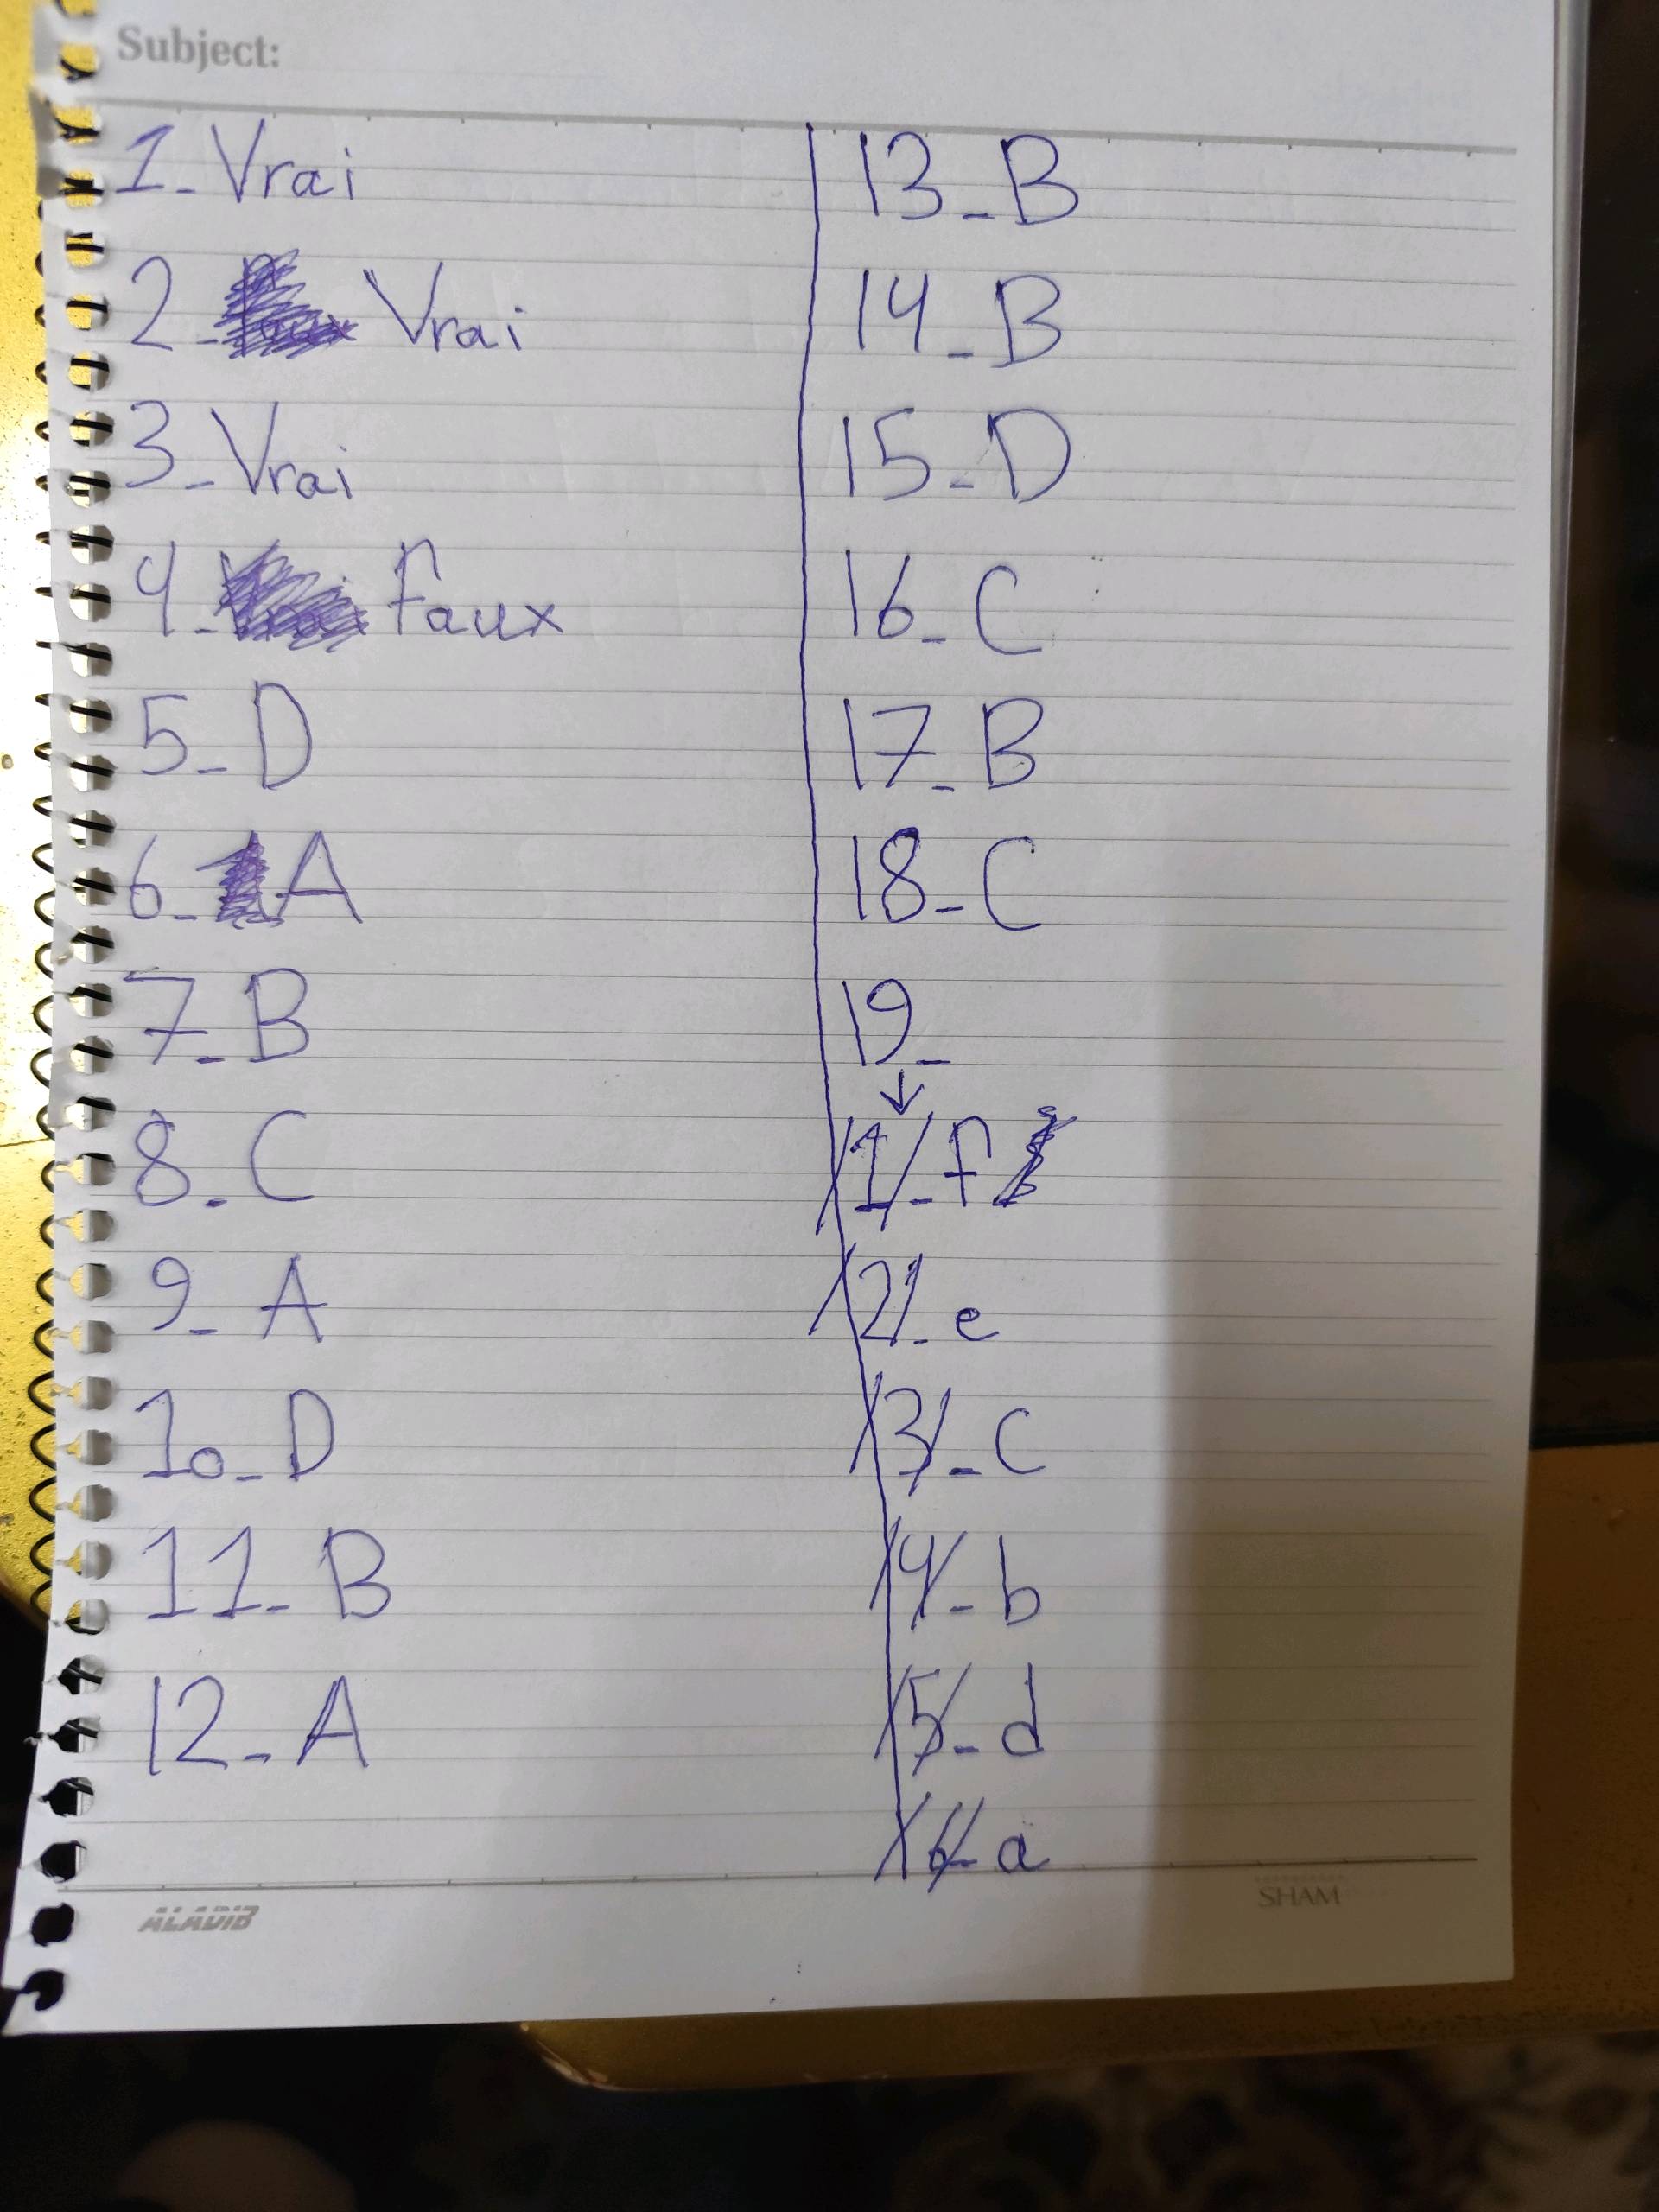 Subject:
1_Vrai
2_ Vrai
3_Vrai
4_ Faux
5_D
6_ A
7_B
8_C
9_A
10_D
11_B
12_A
13_B
14_B
15_D
16_C
17_B
18_C
19_
↓
/1/_F
/2/_e
/3/_c
/4/_b
/5/_d
/6/_a
ALADIB
SHAM